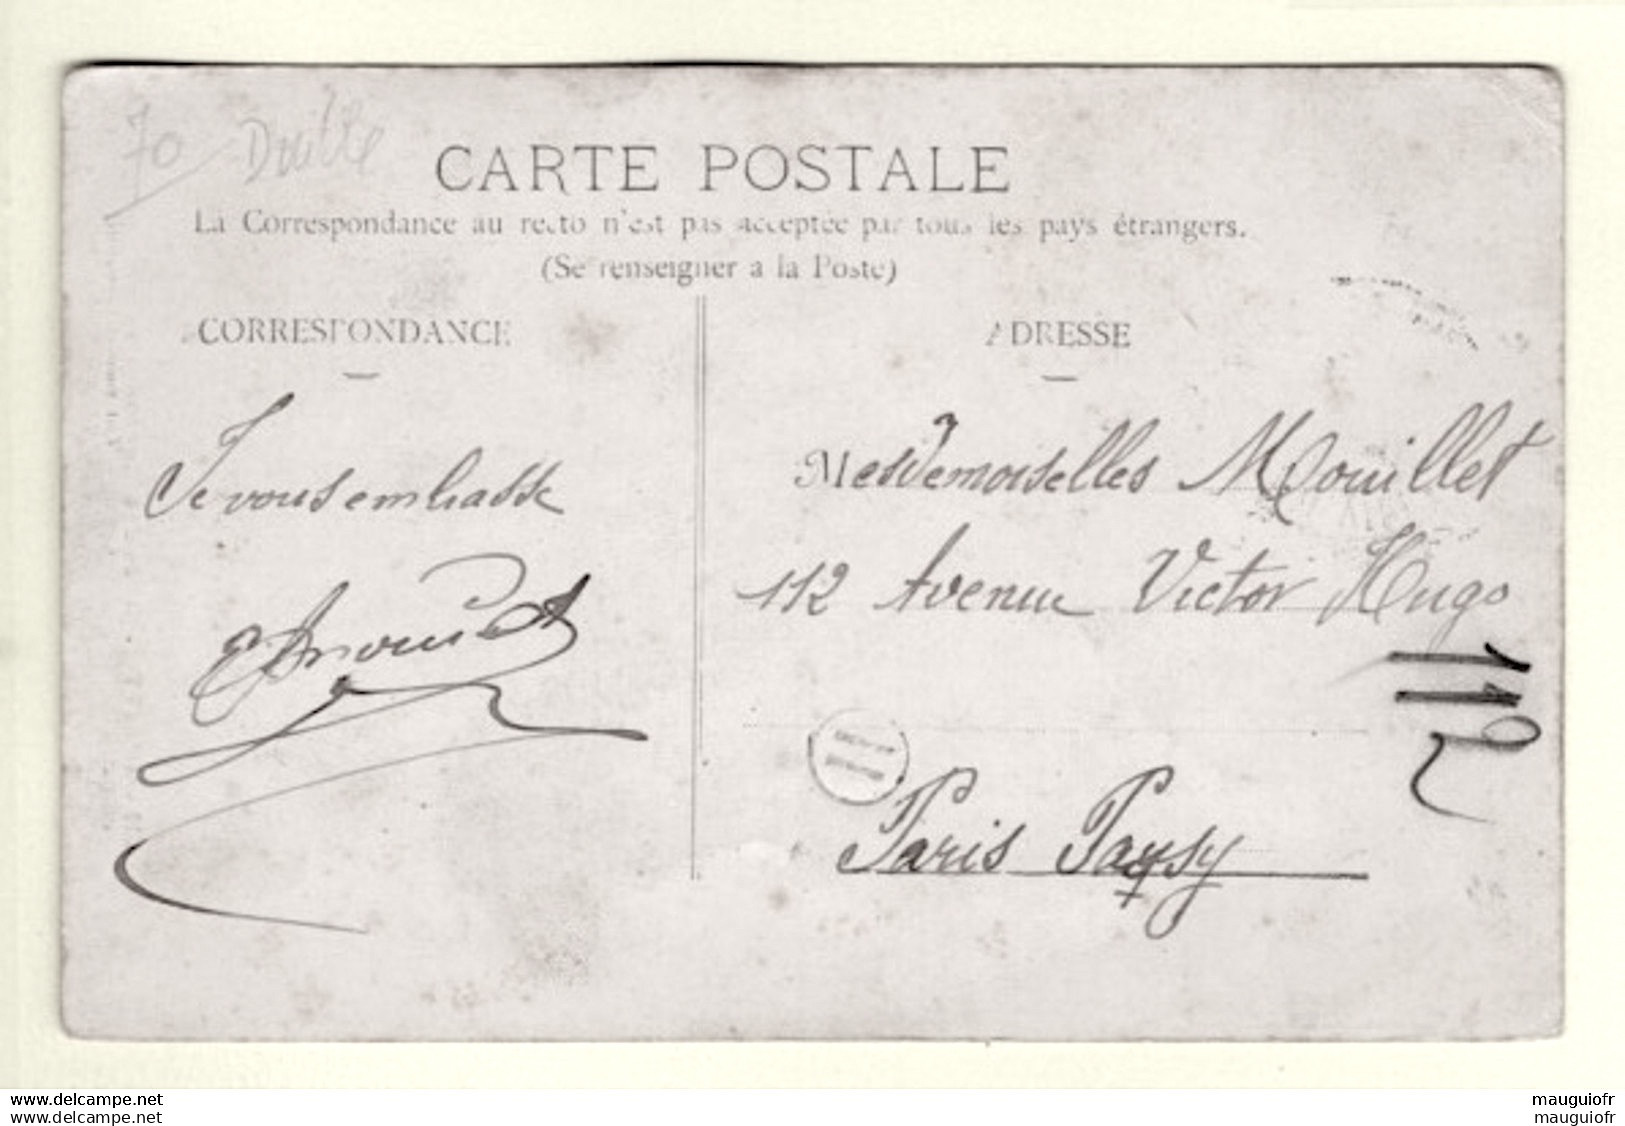 70
CARTE POSTALE
La Correspondance au recto n'est pas acceptée par tous les pays étrangers.
(Se renseigner a la Poste)
CORRESPONDANCE
Je vous embrasse
ADRESSE
Mesdemoiselles Mouillet
112 Avenue Victor Hugo
112
Paris Passy
www.delcampe.net
www.delcampe.net
mauguiofr
mauguiofr